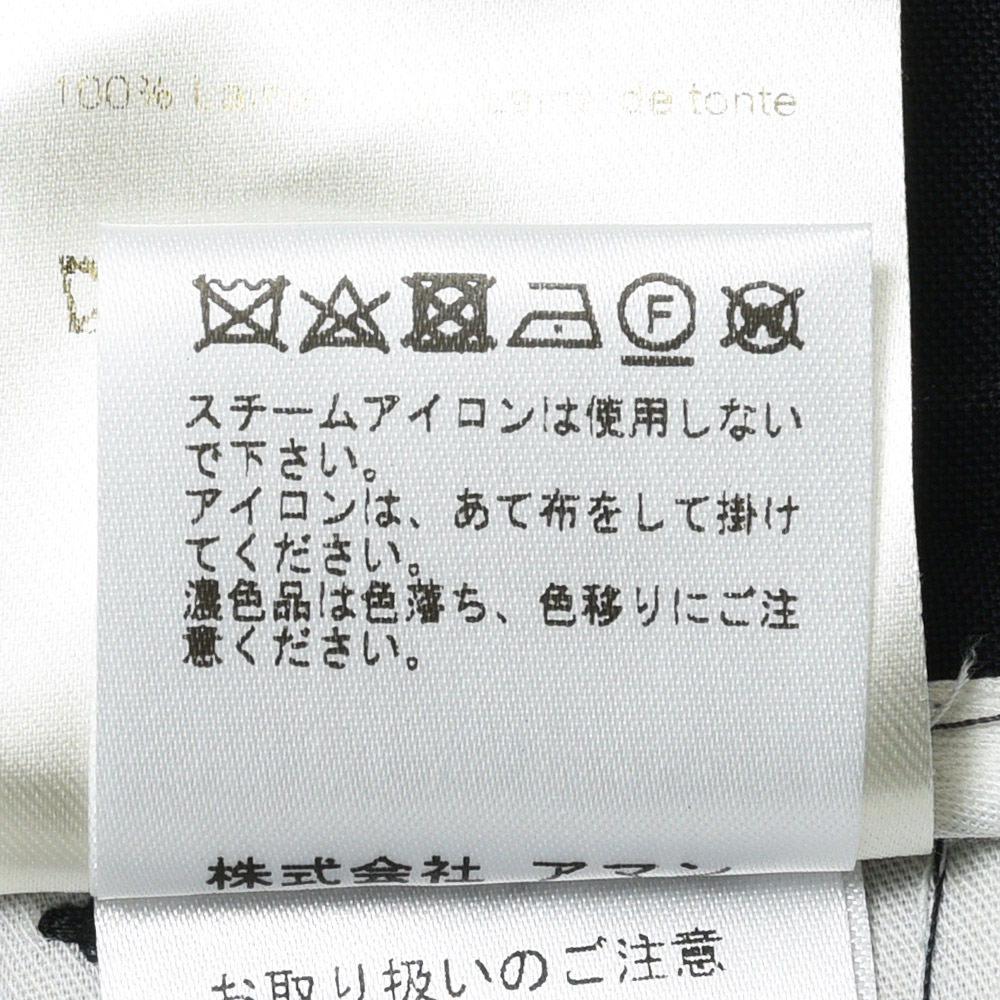 100% de tonte
F
W
スチームアイロンは使用しない
で下さい。
アイロンは、あて布をして掛け
てください。
濃色品は色落ち、色移りにご注
意ください。
株式会社 アマン
お取り扱いのご注意